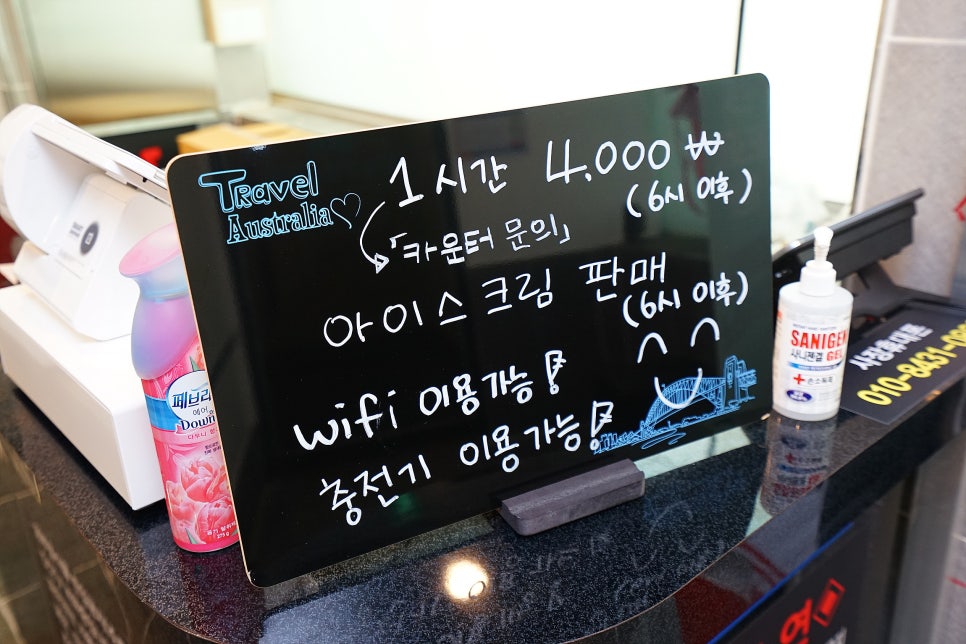 Travel
Australia
1시간 4.000₩
(6시 이후)
「카운터 문의」
아이스크림 판매
(6시 이후)
wifi 이용가능!
충전기 이용가능!
SANIGEN
사니젠겔 GEL
손소독제
Down
사장휴대폰
010-8431-0